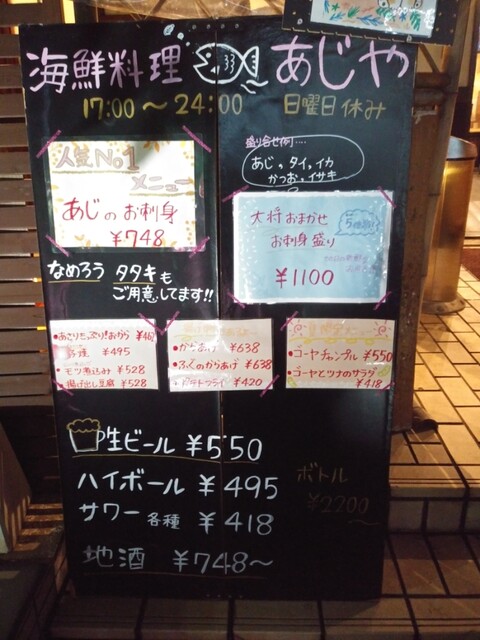 海鮮料理 あじや
17:00～24:00 日曜日休み
人気No1
メニュー
あじのお刺身
¥748
盛り合せ(例)....
あじ。タイ。イカ
かつお。イサキ
大将おまかせ
お刺身盛り
¥1100
なめろう タタキも
ご用意してます!!
¥495
・モツ煮込み ¥528
・揚げ出し豆腐 ¥528
・からあげ ¥638
・ふぐのからあげ ¥638
・ポテトフライ ¥420
・ゴーヤチャンプル ¥550
・ゴーヤとツナのサラダ
¥418
生ビール ¥550
ハイボール ¥495
サワー各種 ¥418
地酒 ¥748～
ボトル
¥2200～